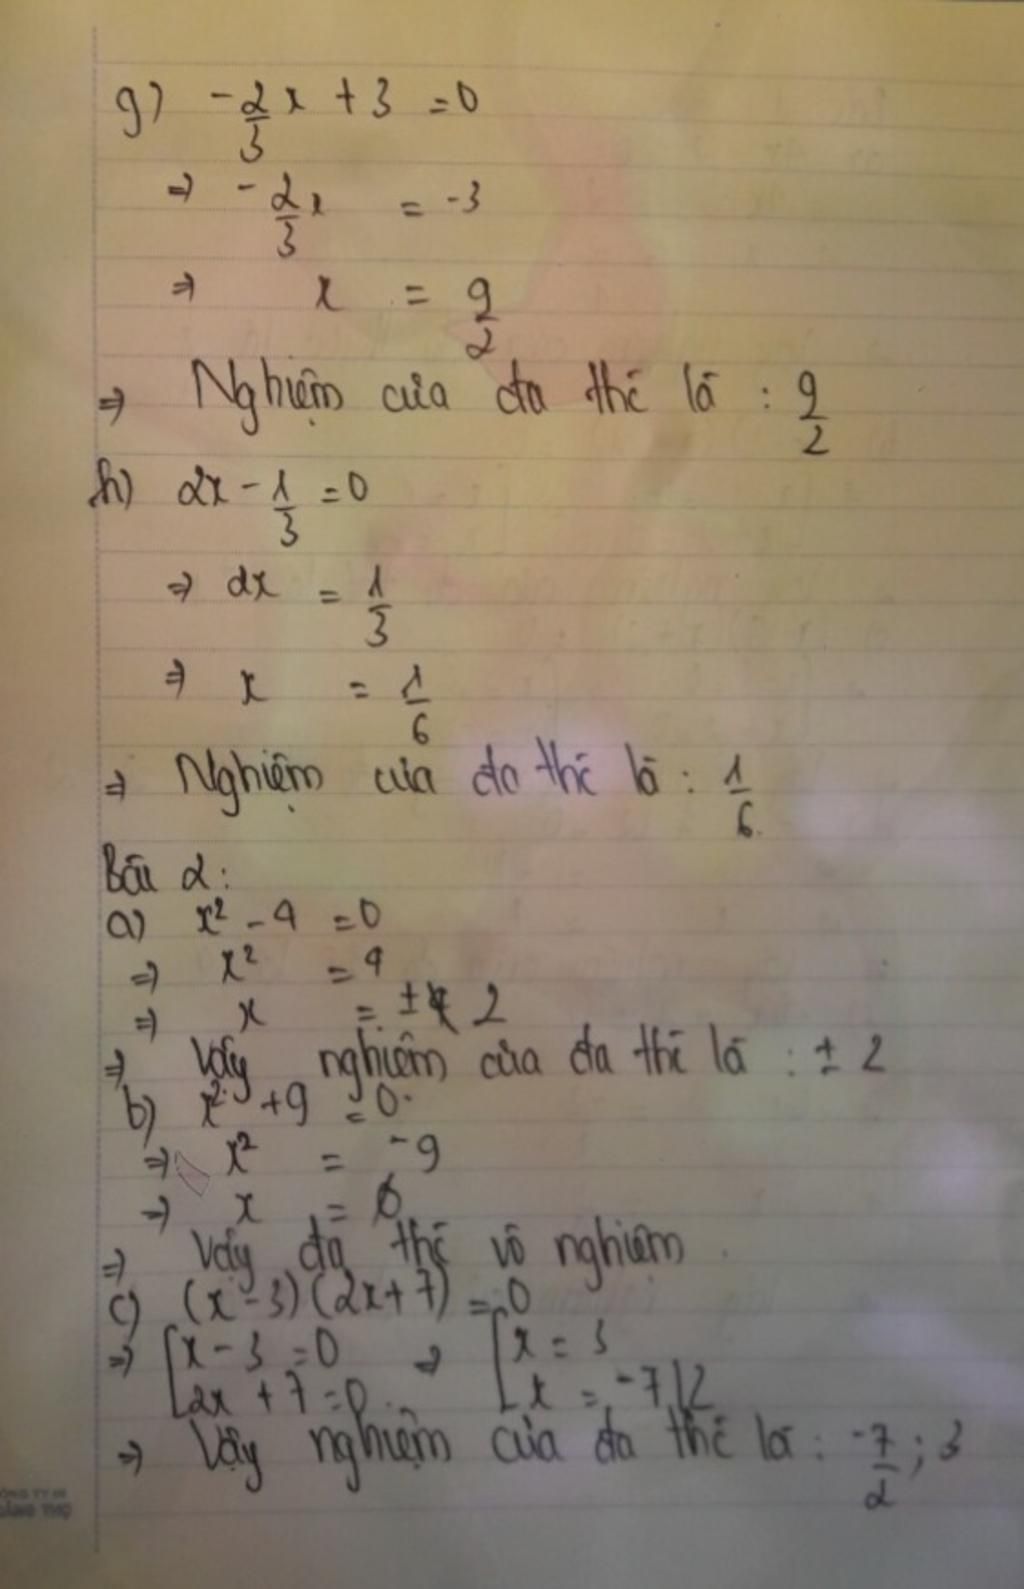 g) -2/3 x + 3 = 0
⇒ -2/3 x = -3
⇒ x = 9/2
⇒ Nghiệm của đa thức là : 9/2
h) 2x - 1/3 = 0
⇒ 2x = 1/3
⇒ x = 1/6
⇒ Nghiệm của đa thức là : 1/6
Bài 2:
a) x² - 4 = 0
⇒ x² = 4
⇒ x = ± 2
⇒ Vậy nghiệm của đa thức là : ± 2
b) x² + 9 = 0
⇒ x² = -9
⇒ x = ∅
⇒ Vậy đa thức vô nghiệm
c) (x - 3)(2x + 7) = 0
⇒ [x - 3 = 0 ⇒ [x = 3
[2x + 7 = 0 [x = -7/2
⇒ Vậy nghiệm của đa thức là : -7/2 ; 3